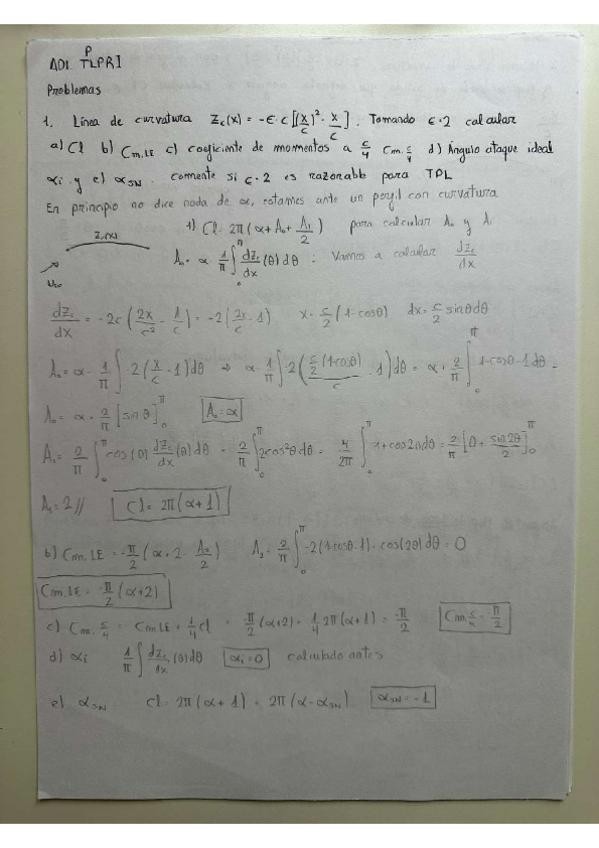 P
AD1. TLPRI
Problemas
1. Línea de curvatura Zc(x) = -ϵ·c[(x/c)² - x/c]. Tomando ϵ=2 calcular
a) Cl b) Cm,LE c) coeficiente de momentos a c/4 Cm,c/4 d) Ángulo ataque ideal
αi y e) αSN. Comente si ϵ=2 es razonable para TPL
En principio no dice nada de α, estamos ante un perfil con curvatura
1) Cl = 2π(α + A₀ + A₁/2) para calcular A₀ y A₁
A₀ = α - 1/π ∫₀^π dZc/dx (θ) dθ : Vamos a calcular dZc/dx
U∞
dZc/dx = -2c(2x/c² - 1/c) = -2(2x/c - 1) x = c/2 (1-cosθ) dx = c/2 sinθdθ
A₀ = α - 1/π ∫ -2(x/c - 1)dθ ⇒ α - 1/π ∫ -2(c/2 (1-cosθ)/c - 1)dθ = α + 2/π ∫₀^π 1-cosθ-1dθ =
A₀ = α + 2/π [sinθ]₀^π A₀ = α
A₁ = 2/π ∫₀^π cos(θ) dZc/dx (θ)dθ = 2/π ∫₀^π 2cos²θdθ = 4/2π ∫₀^π 1+cos2θdθ = 2/π [θ + sin2θ/2]₀^π
A₁ = 2// Cl = 2π(α+1)
b) Cm,LE = -π/2 (α + 2 - A₂/2) A₂ = 2/π ∫₀^π -2(1-cosθ-1)·cos(2θ)dθ = 0
Cm,LE = -π/2 (α+2)
c) Cm,c/4 = Cm,LE + 1/4 Cl = -π/2 (α+2) + 1/4 2π(α+1) = -π/2 Cm,c/4 = -π/2
d) αi 1/π ∫ dZc/dx (θ)dθ αi = 0 calculado antes
e) αSN Cl = 2π(α+1) = 2π(α-αSN) αSN = -1